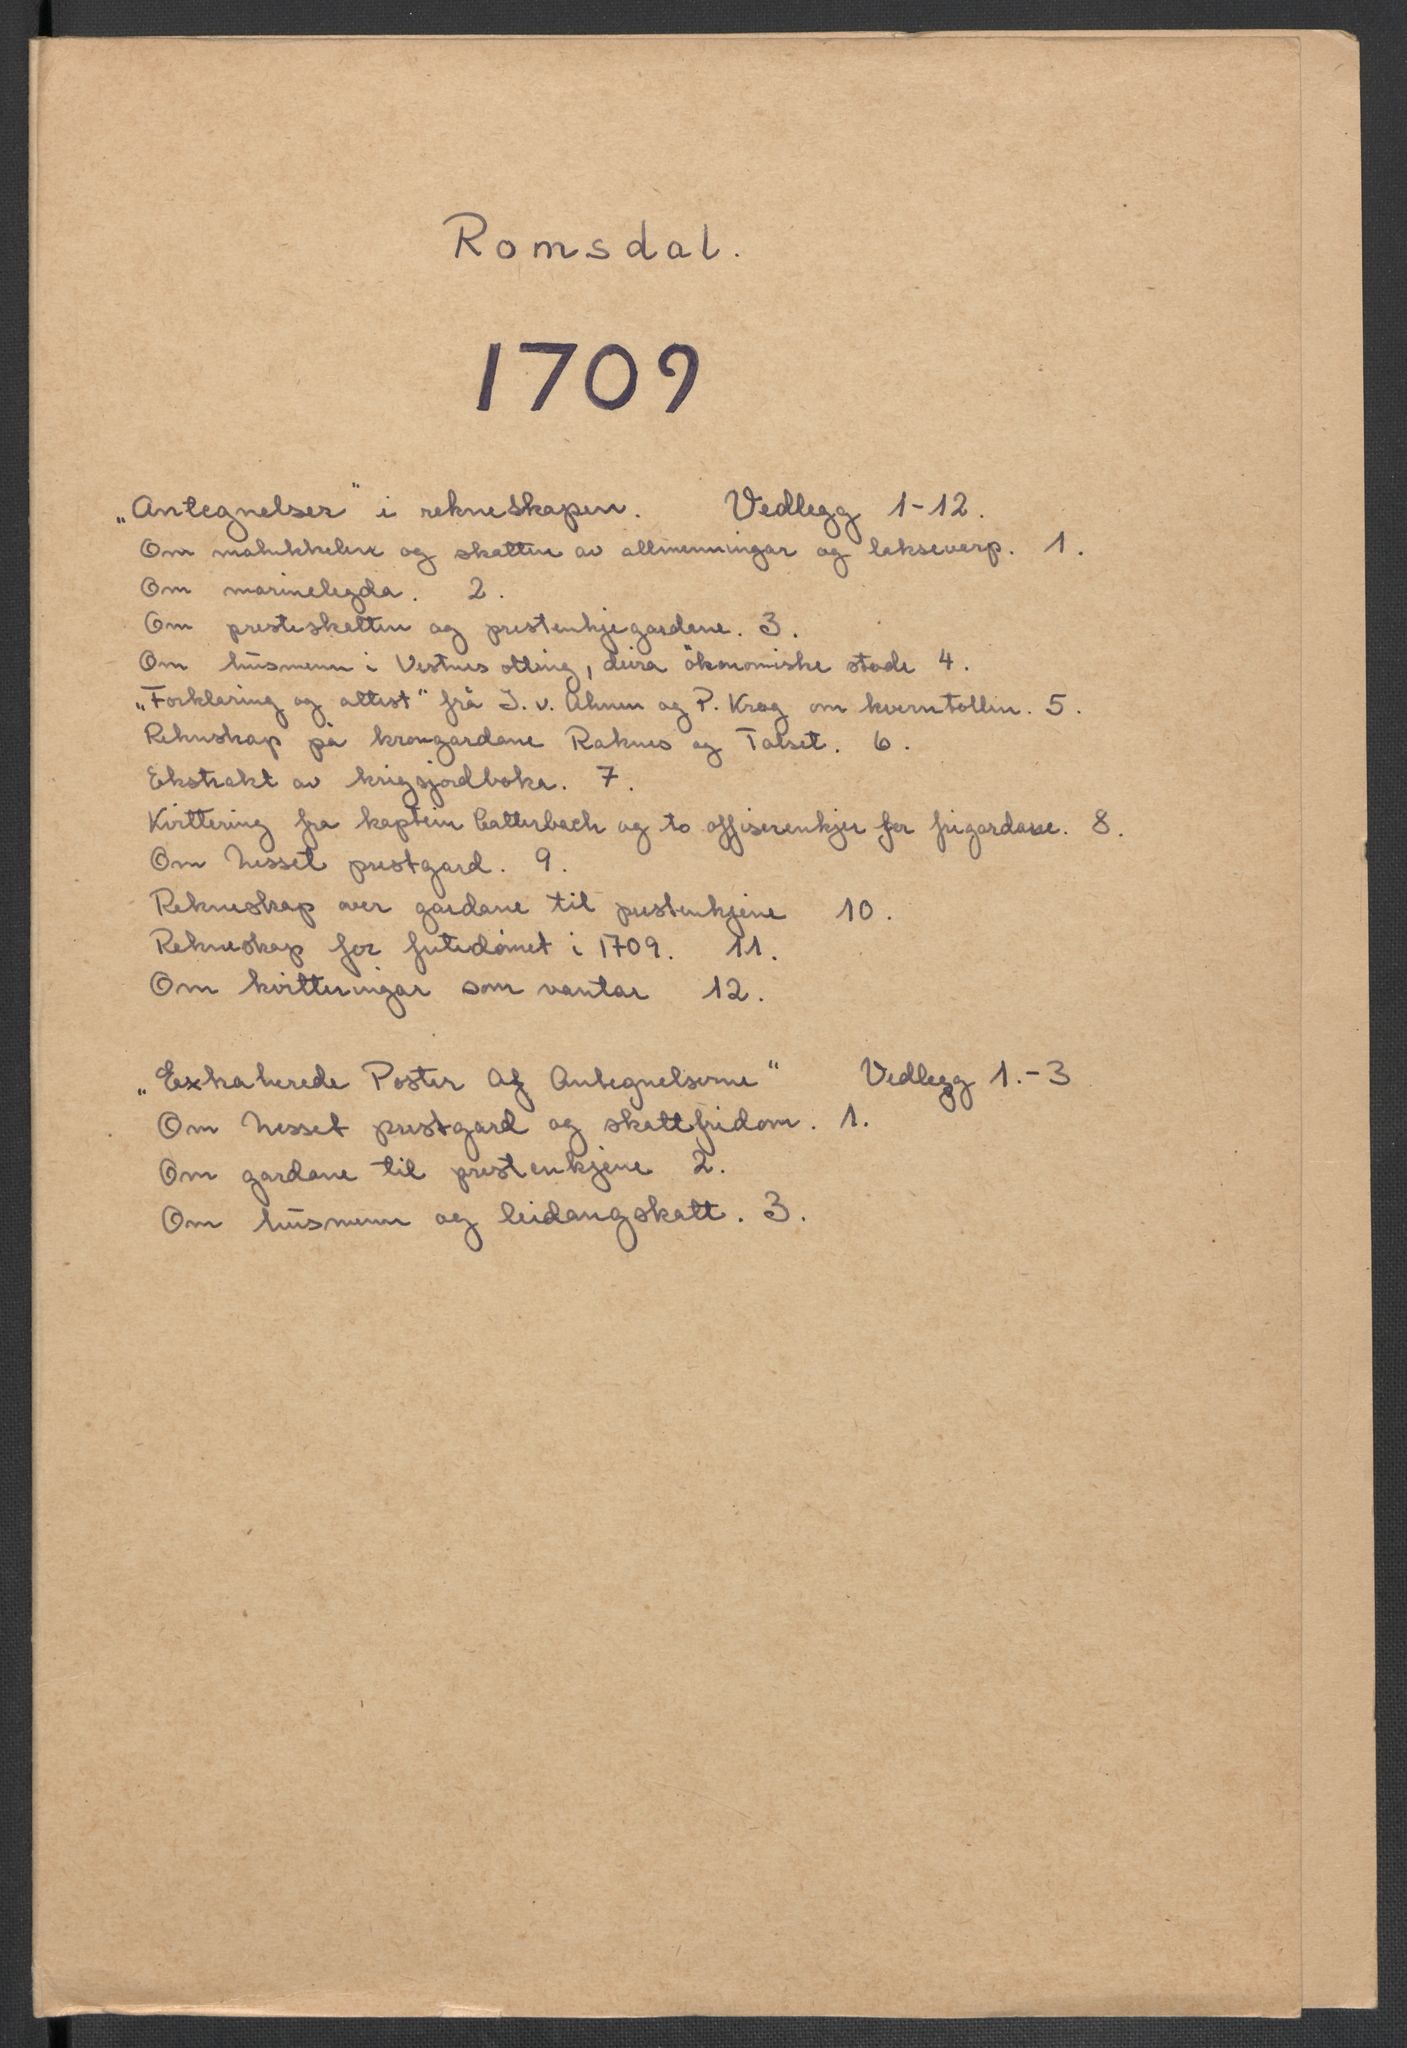 Romsdal.
1709
„Antegnelser" i rekneskapen. Vedlegg 1-12.
Om og skatten av allmenningar og laksevarp. 1.
Om marinelegda. 2.
Om presteskatten og prestenkjegardane. 3.
Om husmenn i Vestnes otting, deira økonomiske stode 4.
„Forklaring og attest" frå J. v. Ahnen og P. Krag om kverntollen. 5.
Rekneskap på krongardane Raknes og Talset. 6.
Ekstrakt av krigsjordboka. 7.
Kvittering fra kaptein Catterbach og to offiserenkjer for frigardane. 8.
Om Nesset prestgard. 9.
Rekneskap over gardane til prestenkjene 10.
Rekneskap for futedømet i 1709. 11.
Om kvitteringar som vantar 12.
„Exkaherede Poster Af Antegnelserne" Vedlegg 1.-3
Om Nesset prestgard og skattfridom. 1.
Om gardane til prestenkjene 2.
Om husmenn og leidangskatt. 3.